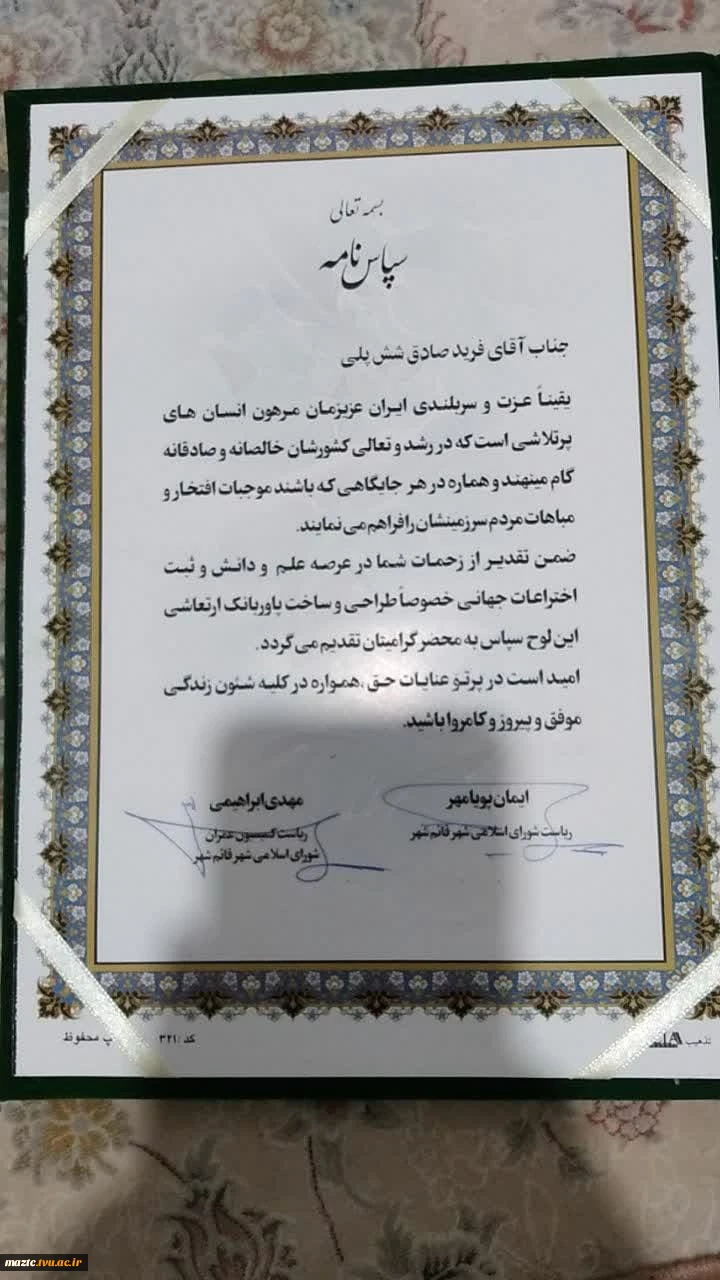 بسمه تعالی
سپاس نامه
جناب آقای فرید صادق شش پلی
یقیناً عزت و سربلندی ایران عزیزمان مرهون انسان های
پرتلاشی است که در رشد و تعالی کشورشان خالصانه و صادقانه
گام مینهند و هماره در هر جایگاهی که باشند موجبات افتخار و
مباهات مردم سرزمینشان را فراهم می نمایند.
ضمن تقدیر از زحمات شما در عرصه علم و دانش و ثبت
اختراعات جهانی خصوصاً طراحی و ساخت پاوربانک ارتعاشی
این لوح سپاس به محضر گرامیتان تقدیم می گردد.
امید است در پرتو عنایات حق ،همواره در کلیه شئون زندگی
موفق و پیروز و کامروا باشید.
ایمان پویامهر
ریاست شورای اسلامی شهر قائم شهر
مهدی ابراهیمی
ریاست کمیسیون عمران
شورای اسلامی شهر قائم شهر
تذهیب
کد : ۳۲۱
محفوظ
maztc.tvu.ac.ir